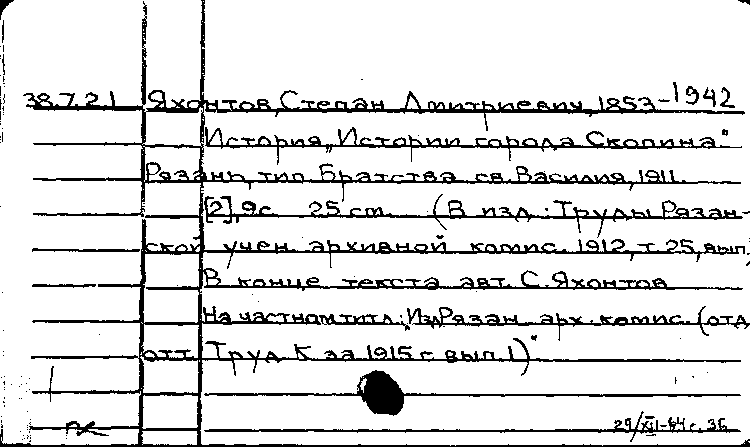 38.7.21 Яхонтов, Степан Дмитриевич, 1853-1942
История „Истории города Скопина"
Рязань, тип. Братства св. Василия, 1911.
[2], 9 с. 25 ст. (В изд.: Труды Рязан-
ской учен. архивной комис. 1912, т. 25, вып.
В конце текста авт. С. Яхонтов
На частном титл.: „Изд Рязан. арх. комис. (отд.
отт. Труд. К за 1915 г. вып. 1)"
29/XII-64 г. 36